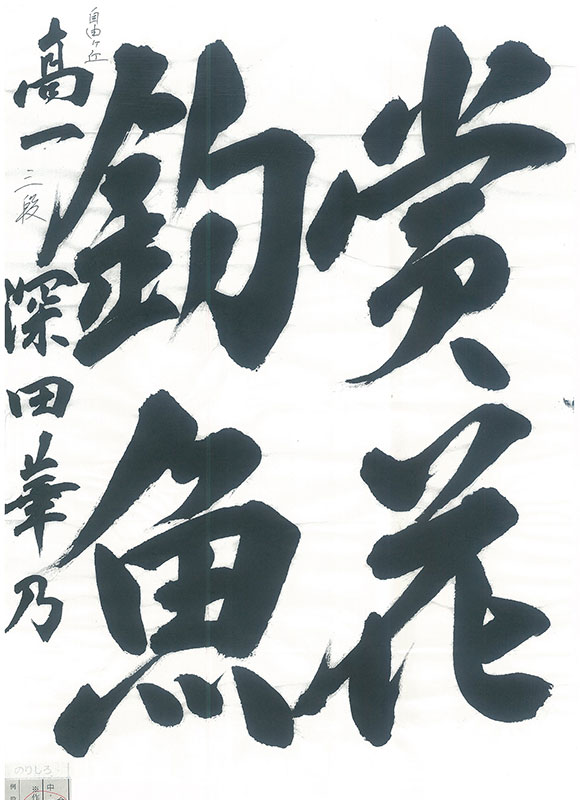 賞花
釣魚
自由ヶ丘
高一 三段 深田華乃
のりしろ